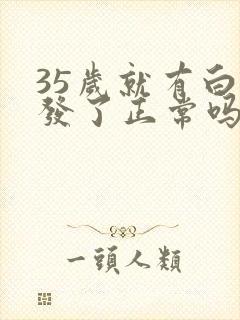 35歲就有白
發了正常嗎
一頭人類